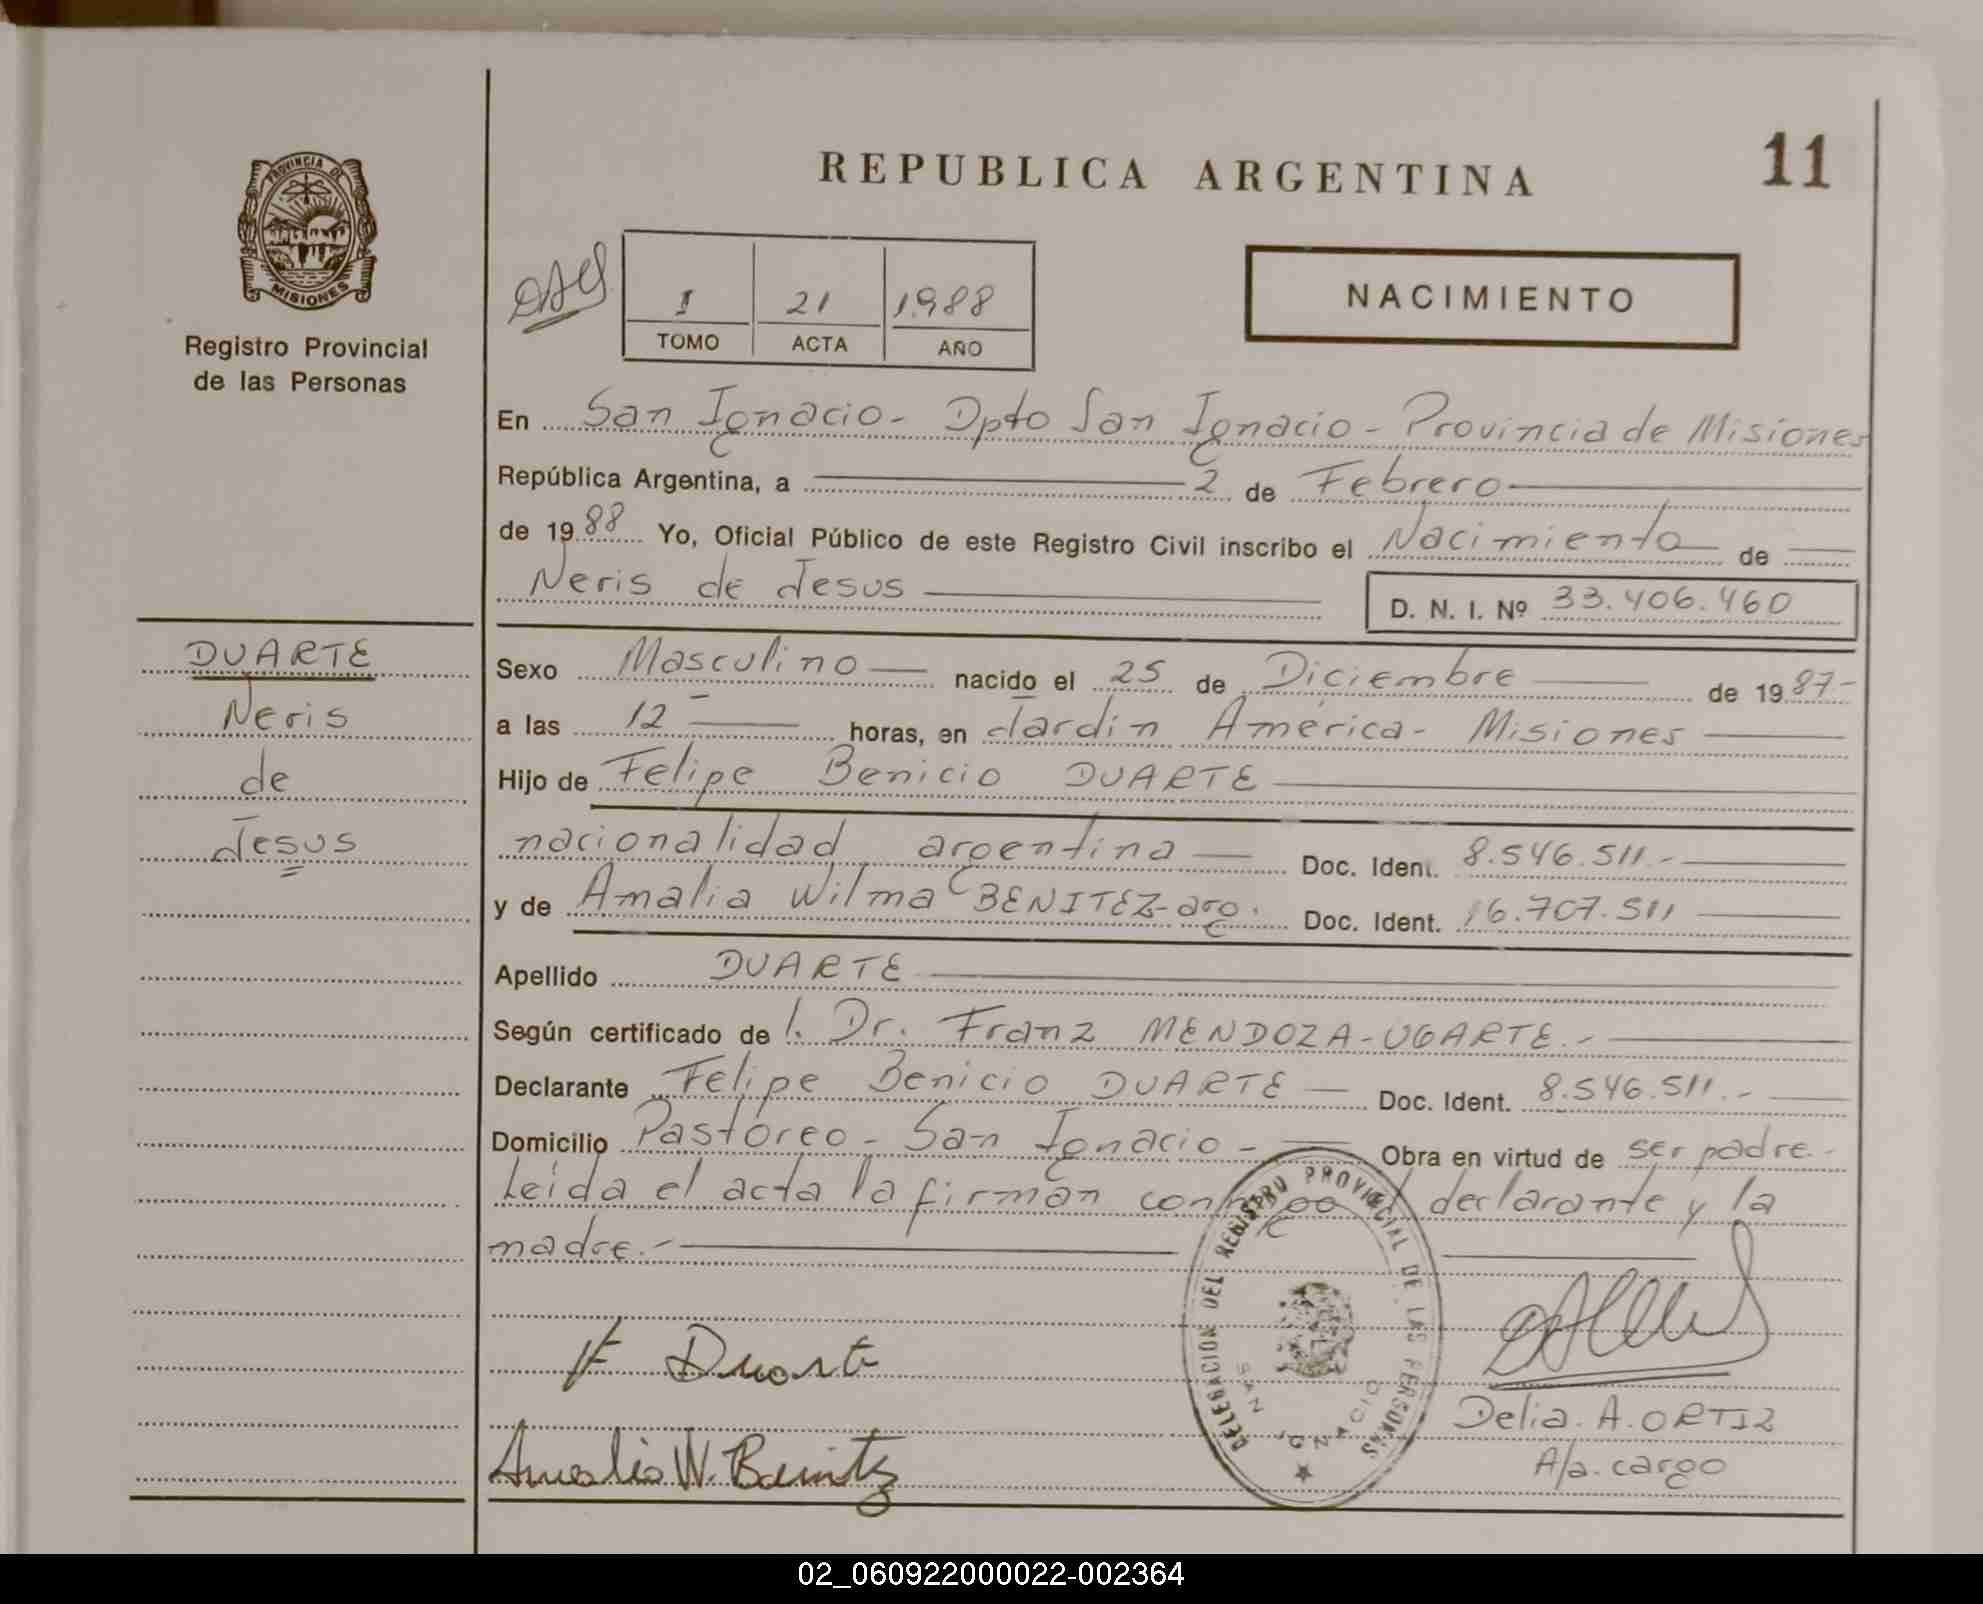 REPUBLICA ARGENTINA
11
PROVINCIA DE
MISIONES
Registro Provincial
de las Personas
I 21 1988
TOMO ACTA AÑO
NACIMIENTO
En San Ignacio - Dpto San Ignacio - Provincia de Misiones
República Argentina, a 2 de Febrero
de 1988 Yo, Oficial Público de este Registro Civil inscribo el Nacimiento de
Neris de Jesus D. N. I. Nº 33.406.460
DUARTE
Neris
de
Jesus
Sexo Masculino nacido el 25 de Diciembre de 1987-
a las 12 horas, en Jardín América - Misiones
Hijo de Felipe Benicio DUARTE
nacionalidad argentina Doc. Ident. 8.546.511.-
y de Amalia Wilma BENITEZ - arg. Doc. Ident. 16.707.511
Apellido DUARTE
Según certificado de l. Dr. Franz MENDOZA-UGARTE.-
Declarante Felipe Benicio DUARTE Doc. Ident. 8.546.511.-
Domicilio Pastoreo - San Ignacio - Obra en virtud de ser padre.-
Leída el acta la firman conmigo el declarante y la
madre.-
DELEGACION DEL REGISTRO PROVINCIAL DE LAS PERSONAS
SAN IGNACIO
F Duarte
Amalia W. Benitez
Delia. A. ORTIZ
A/a. cargo
02_060922000022-002364